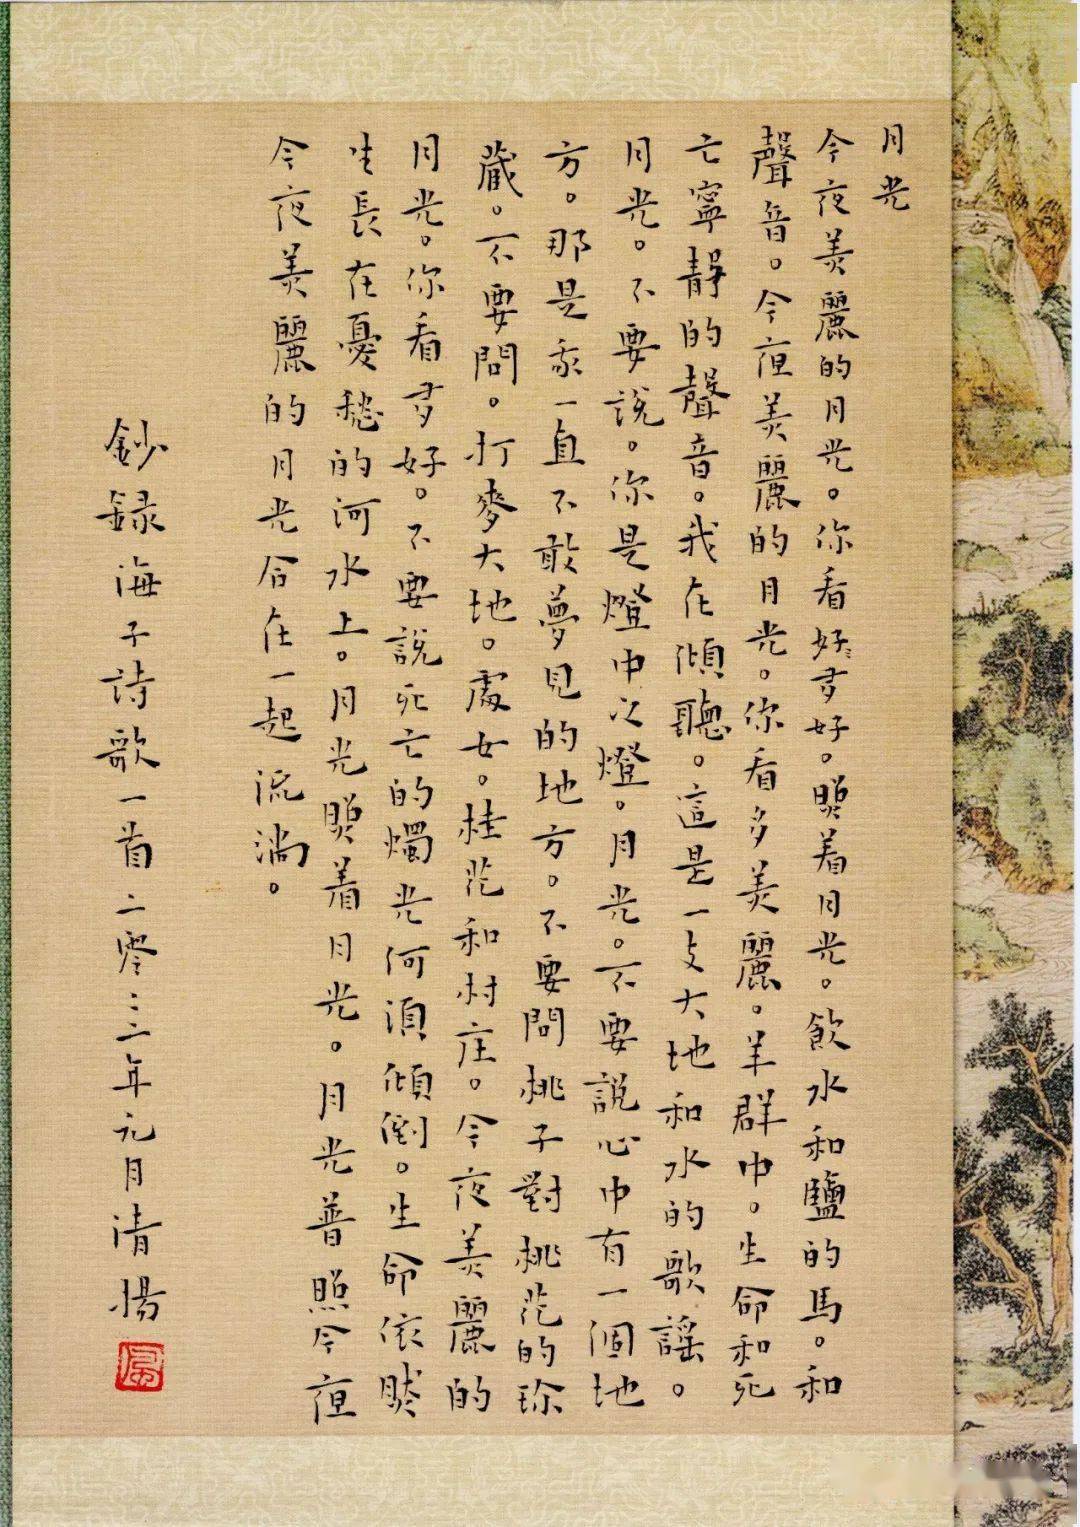 月光
今夜美麗的月光。你看好多好。照着月光。飲水和鹽的馬。和
聲音。今夜美麗的月光。你看多美麗。羊群中。生命和死
亡寧靜的聲音。我在傾聽。這是一支大地和水的歌謠。
月光。不要說。你是燈中之燈。月光。不要說心中有一個地
方。那是我一直不敢夢見的地方。不要問桃子對桃花的珍
藏。不要問。打麥大地。處女。桂花和村庄。今夜美麗的
月光。你看多好。不要說死亡的燭光何須傾倒。生命依然
生長在憂愁的河水上。月光照着月光。月光普照今夜
今夜美麗的月光合在一起流淌。
鈔録海子詩歌一首二零二二年元月清揚